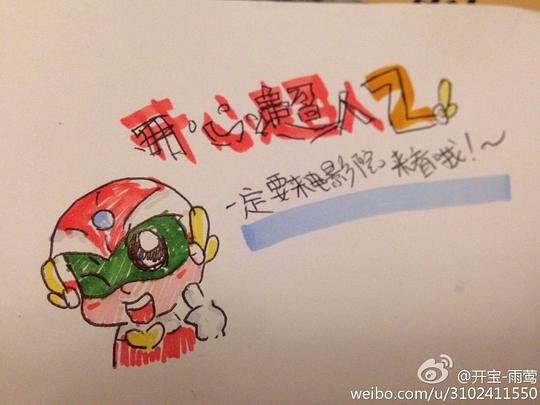 开心超人2!
一定要来电影院来看哦！~
@开宝-雨莺
weibo.com/u/3102411550